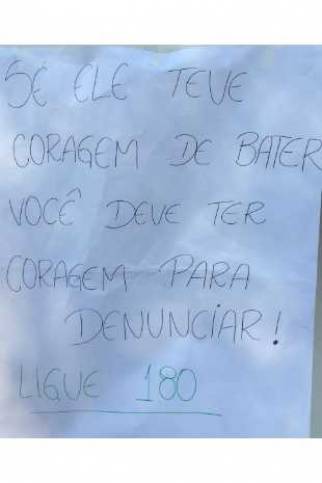 SE ELE TEVE
CORAGEM DE BATER
VOCÊ DEVE TER
CORAGEM PARA
DENUNCIAR!
LIGUE 180